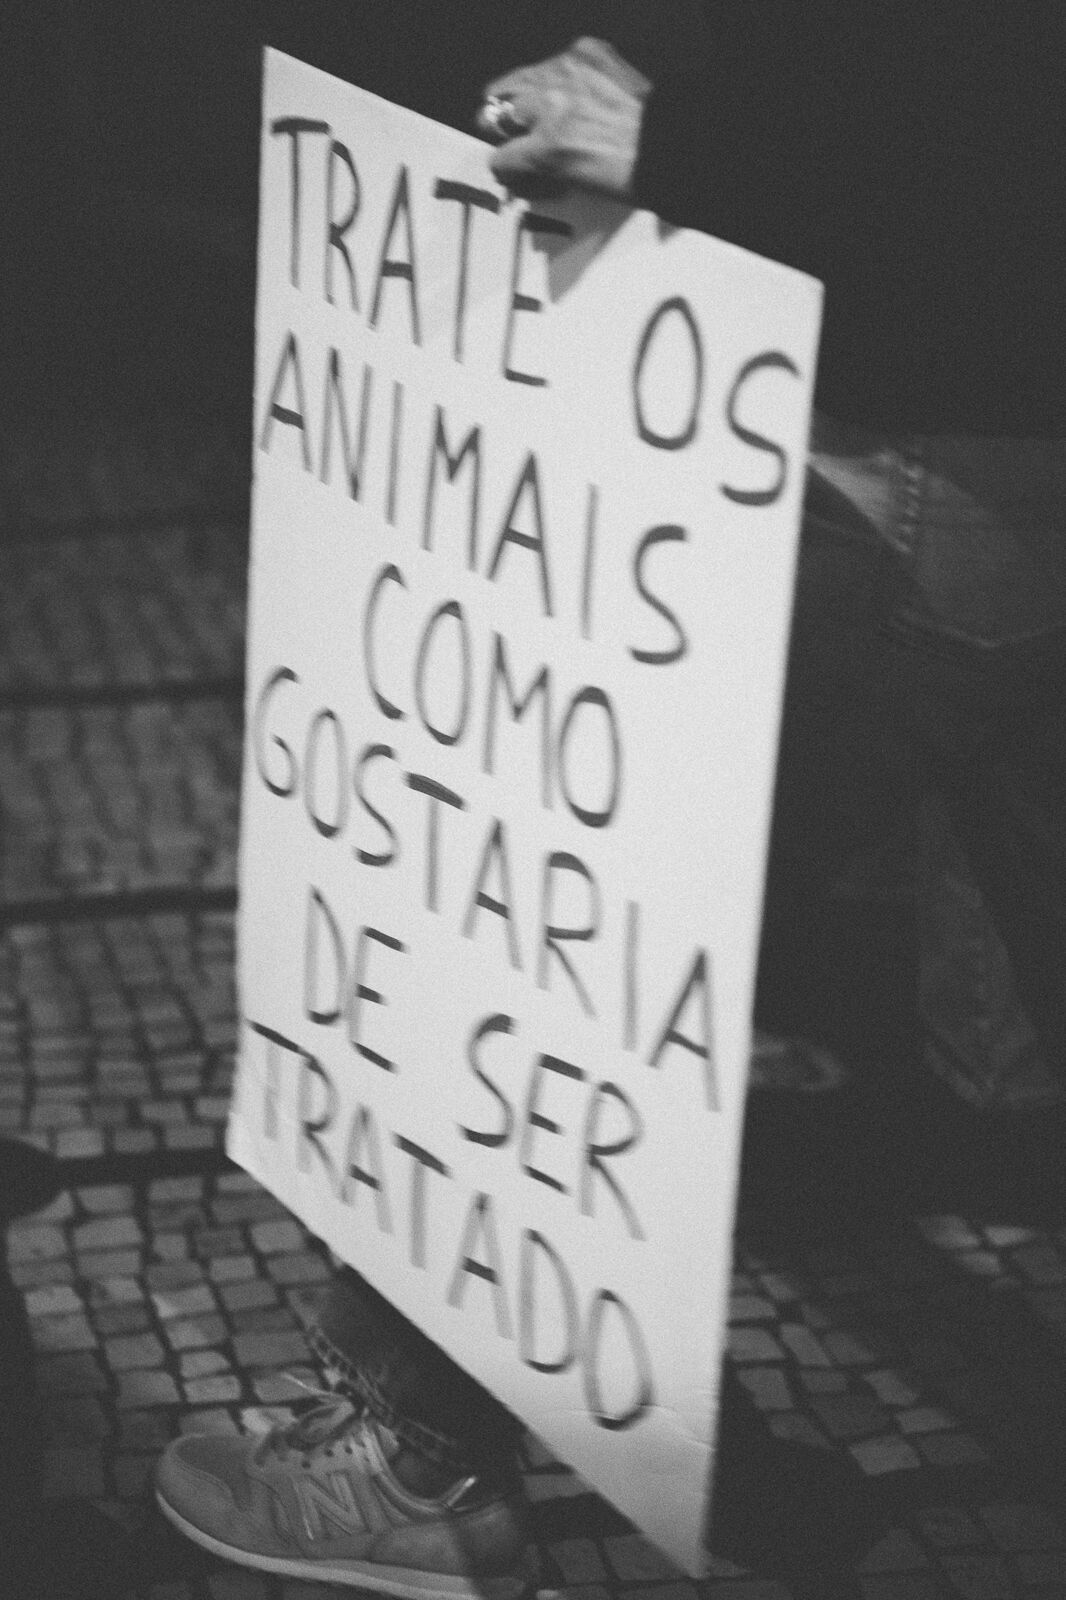 TRATE OS
ANIMAIS
COMO
GOSTARIA
DE SER
TRATADO
N